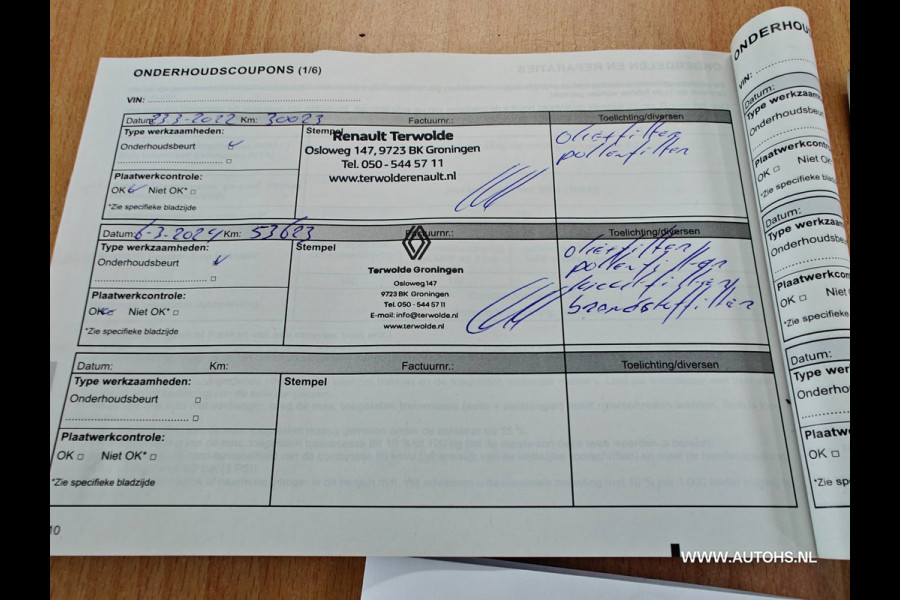 ONDERHOUDSCOUPONS (1/6)
VIN:
Datum: Km: 30023 Factuurnr.: Toelichting/diversen
Type werkzaamheden:
Onderhoudsbeurt
Plaatwerkcontrole:
OK Niet OK*
*Zie specifieke bladzijde
Stempel
Renault Terwolde
Osloweg 147, 9723 BK Groningen
Tel. 050 - 544 57 11
www.terwolderenault.nl
oliefilter
pollenfilter
Datum: 6-3-2024 Km: 53623 Factuurnr.: Toelichting/diversen
Type werkzaamheden:
Onderhoudsbeurt
Plaatwerkcontrole:
OK Niet OK*
*Zie specifieke bladzijde
Stempel
Terwolde Groningen
Osloweg 147
9723 BK Groningen
Tel. 050 - 544 57 11
E-mail: info@terwolde.nl
www.terwolde.nl
oliefilter
pollenfilter
brandstoffilter
Datum: Km: Factuurnr.: Toelichting/diversen
Type werkzaamheden:
Onderhoudsbeurt
Plaatwerkcontrole:
OK Niet OK*
*Zie specifieke bladzijde
Stempel
10
ONDERHOU
VIN:
Datum:
Type werkzaam
Onderhoudsbeu
Plaatwerkcontr
OK Niet OK
*Zie specifieke blad
Datum:
Type werkzaa
Onderhoudsbe
Plaatwerkcon
OK Niet
*Zie specifieke
Datum:
Type wer
Onderho
Plaatw
OK
*Zie sp
WWW.AUTOHS.NL